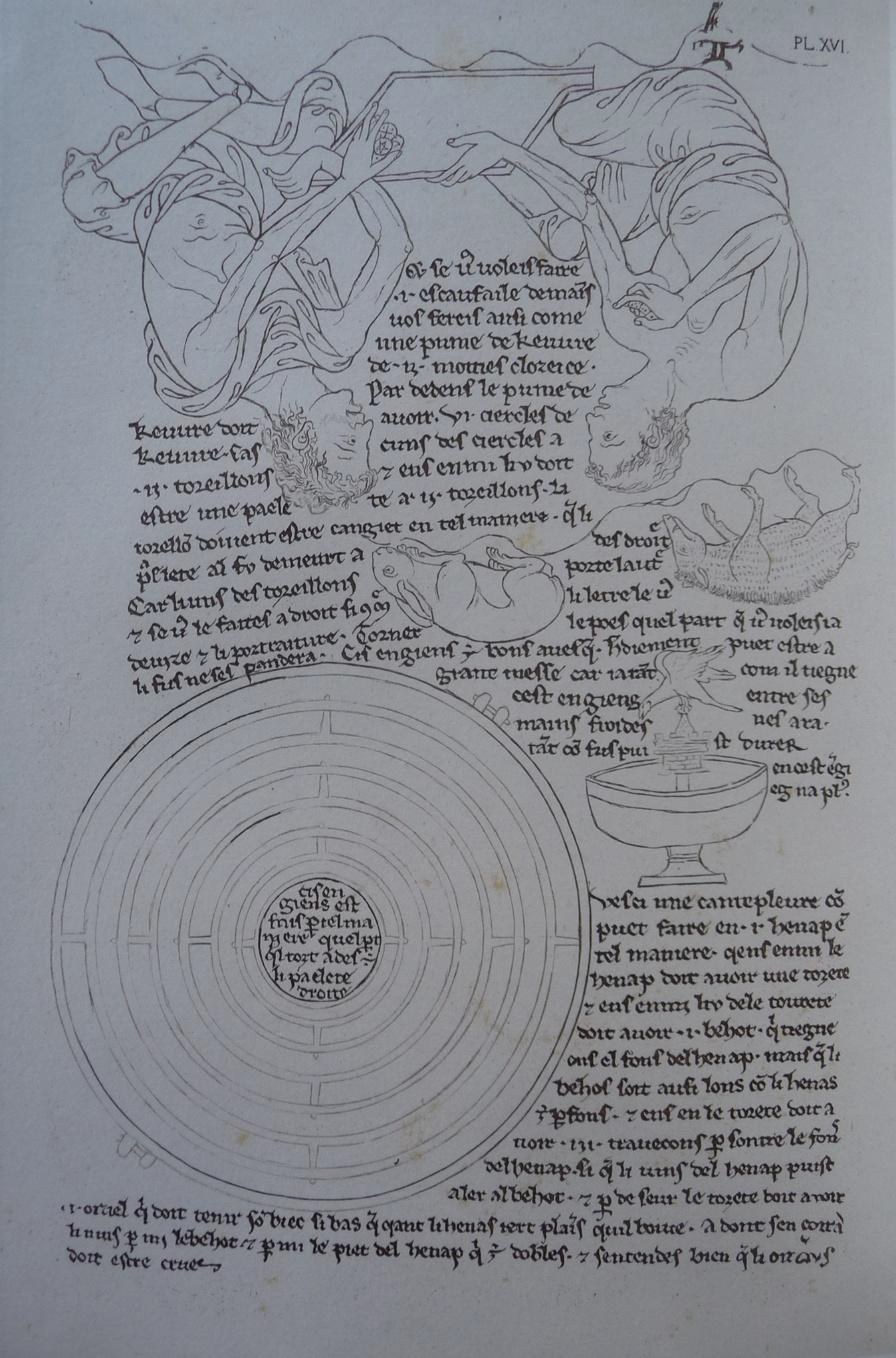 PL. XVI.
Se vͦ voleis faire
.i. escaufaile de mais
vos fereis ausi come
une pume de keuvre
de .ii. moities clozeice.
Par dedens le pume de
keuvre doit avoir .vi. ciercles de
keuvre . cas cuns des ciercles a
.ii. toreillons ⁊ ens enmi liv doit
estre une paele te a .ii. toreillons . li
torellō doivent estre cangiet en tel maniere . q̄ li
paiele al fv demeurt a des droite
Car li uns des toreillons porte l autͤ
⁊ se vͦ le faites a droit si ꝯ li letre le vͦ
devize ⁊ li portraiture . Torner le poes quel part q̄ vͦ voleis ia
li fus ne s espandera . Cis engiens ÷ bons a vesq . hardiement puet estre a
grant messe car ia tāt com il tiegne
cest engieng entre ses
mains froides nes ara .
tāt cō fus puist durer
en cest ēgi
eg na plꝰ .
cis en
giens est
fais p tel ma
niere quel pt
qil tort ades ÷
li paelete
droite
Vesci une cantepleure cō
puet faire en .i. henap ē
tel maniere . qens enmi le
henap doit avoir une torete
⁊ ens enmi liv de le tourete
doit avoir .i. behot . q̄ tiegne
ens el fons del henap . mais q̄ li
behos soit ausi lons cō li henas
÷ pfons . ⁊ ens en le torete doit a
voir .iii. travecons p sontre le fōs
del henap . si q̄ li vins del henap puist
aler al behot . ⁊ p de seur le torete doit avoir
.i. oiziel q̄ doit tenir sō biec si bas q̄ qant li henas iert plais quil boive . A dont sen corrā
li vins p mi le behot ⁊ p mi le piet del henap q̄ ÷ dobles . ⁊ sentendes bien q̄ li oiziaus
doit estre crues